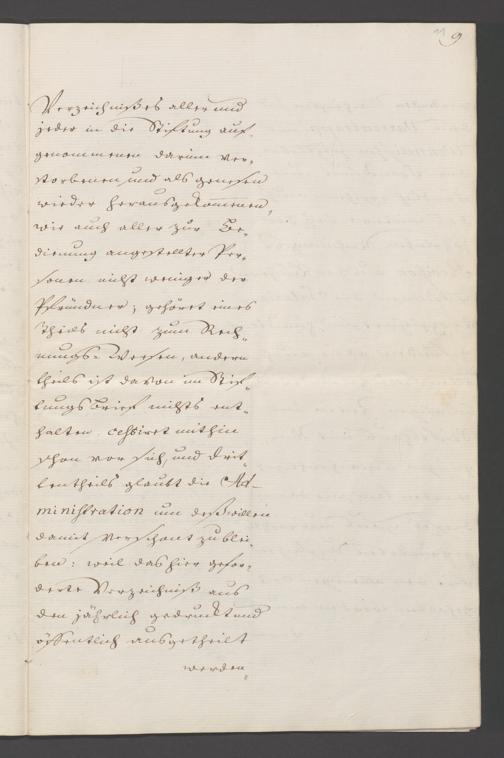 11 9
Verzeichnißes aller und
jeder in die Stiftung auf-
genommenen darinn ver-
storbenen, und als genesen
wieder herausgekommenen,
wie auch aller zur Be-
dienung angestellter Per-
sonen nicht weniger der
Pfründner; gehöret eines
Theils nicht zum Rech-
nungs-Weesen, andern
theils ist davon im Stif-
tungs Brief nichts ent-
halten, cessiret mithin
schon vor sich, und drit-
tentheils glaubt die Ad-
ministration um deßwillen
damit verschont zu blei-
ben: weil das hier gefor-
derte Verzeichniß aus
den jährlich gedruckt und
öffentlich ausgetheilt
werden-